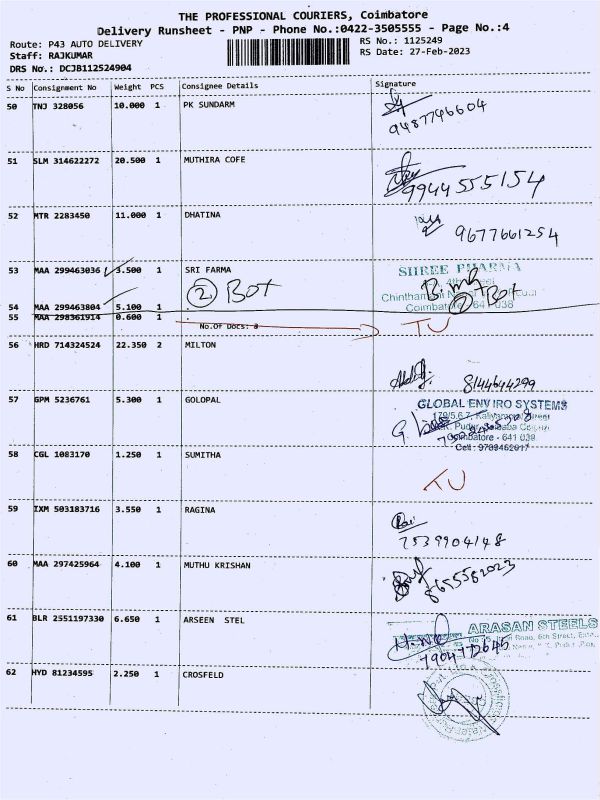 THE PROFESSIONAL COURIERS, Coimbatore
Delivery Runsheet - PNP - Phone No.:0422-3505555 - Page No.:4
Route: P43 AUTO DELIVERY RS No.: 1125249
Staff: RAJKUMAR RS Date: 27-Feb-2023
DRS No.: DCJB112524904
S No Consignment No Weight PCS Consignee Details Signature
50 TNJ 328056 10.000 1 PK SUNDARM
9487746604
51 SLM 314622272 20.500 1 MUTHIRA COFE
9944555154
52 MTR 2283450 11.000 1 DHATINA
9677661254
53 MAA 299463036 3.500 1 SRI FARMA SHREE PHARMA
2 Box
2 Box
54 MAA 299463804 5.100 1 .
55 MAA 298361914 0.600 1 .
No.Of Docs: TU
56 HRD 714324524 22.350 2 MILTON
8144644299
57 GPM 5236761 5.300 1 GOLOPAL GLOBAL ENVIRO SYSTEMS
Coimbatore - 641 039
Cell : 9789462017
58 CGL 1083170 1.250 1 SUMITHA
TU
59 IXM 503183716 3.550 1 RAGINA
7539904148
60 MAA 297425964 4.100 1 MUTHU KRISHAN
8655582023
61 BLR 2551197330 6.650 1 ARSEEN STEL ARASAN STEELS
62 HYD 81234595 2.250 1 CROSFELD